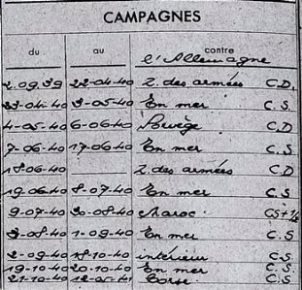 CAMPAGNES
du au contre
l'Allemagne
2.09.39 22-04-40 Z. des armées C.D.
23-04-40 3-05-40 En mer C.S
4-05-40 6-06-40 Norvège C.D
7-06-40 17-06-40 En mer C.S
18-06-40 Z. des armées C.D
19-06-40 8-07-40 En mer C.S
9-07-40 30-08-40 Maroc CS+½
1-09-40 En mer C.S
2-09-40 18-10-40 intérieur C.S
19-10-40 20-10-40 En mer C.S.
21-10-40 Corse C.S.